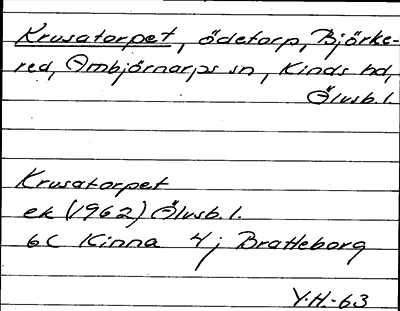 Krusatorpet, ödetorp, Björke-
red, Ambjörnarps sn, Kinds hd,
Älvsb. l.
Krusatorpet
ek (1962) Älvsb. l.
6C Kinna 4j Bratteborg
Y.H.-63